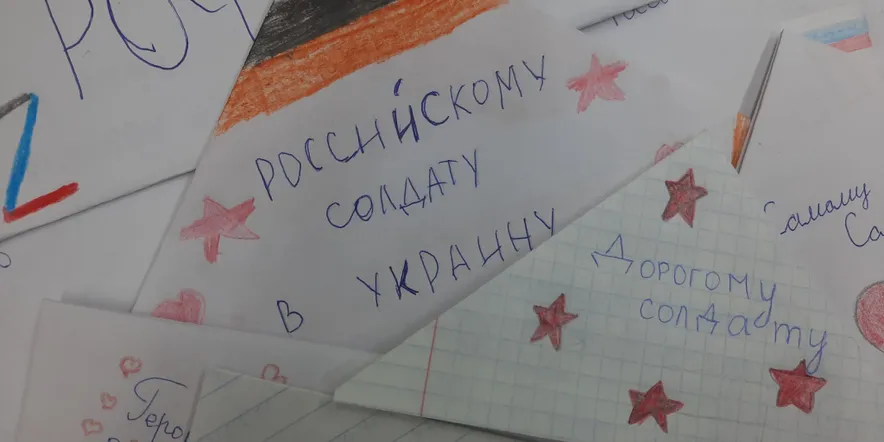 РОССИЙСКОМУ
СОЛДАТУ
В УКРАИНУ
ДОРОГОМУ
СОЛДАТУ
Самому